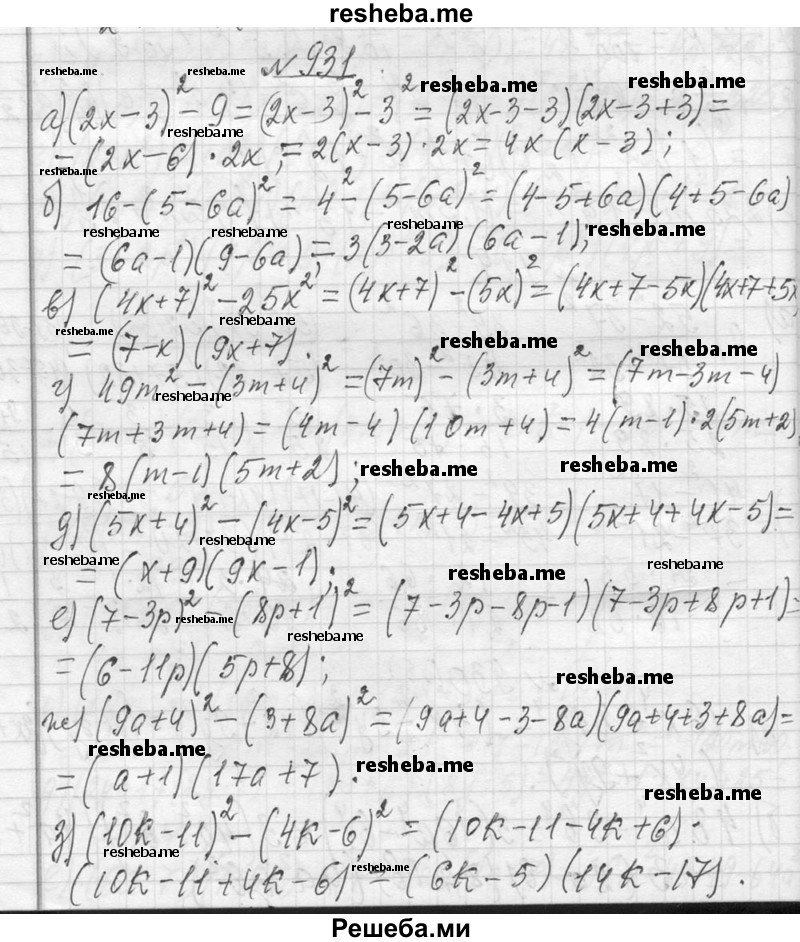 resheba.me
№ 931
resheba.me resheba.me resheba.me resheba.me
а) (2x-3)² - 9 = (2x-3)² - 3² = (2x-3-3)(2x-3+3) =
resheba.me
= (2x-6) · 2x = 2(x-3) · 2x = 4x (x-3);
resheba.me
б) 16-(5-6a)² = 4² - (5-6a)² = (4-5+6a)(4+5-6a)
resheba.me resheba.me resheba.me resheba.me
= (6a-1)(9-6a) = 3(3-2a)(6a-1);
в) (4x+7)² - 25x² = (4x+7)² - (5x)² = (4x+7-5x)(4x+7+5x
resheba.me
resheba.me
= (7-x)(9x+7).
resheba.me resheba.me
г) 49m² - (3m+4)² = (7m)² - (3m+4)² = (7m-3m-4)
resheba.me
(7m+3m+4) = (4m-4)(10m+4) = 4(m-1)·2(5m+2)
= 8(m-1)(5m+2);
resheba.me resheba.me
resheba.me
д) (5x+4)² - (4x-5)² = (5x+4-4x+5)(5x+4+4x-5) =
resheba.me
resheba.me resheba.me resheba.me
= (x+9)(9x-1);
е) (7-3p)² - (8p+1)² = (7-3p-8p-1)(7-3p+8p+1) =
resheba.me
resheba.me
= (6-11p)(5p+8);
resheba.me
ж) (9a+4)² - (3+8a)² = (9a+4-3-8a)(9a+4+3+8a) =
resheba.me
= (a+1)(17a+7).
resheba.me
resheba.me
з) (10k-11)² - (4k-6)² = (10k-11-4k+6) ·
resheba.me
(10k-11+4k-6) = (6k-5)(14k-17).
resheba.me
Решеба.ми